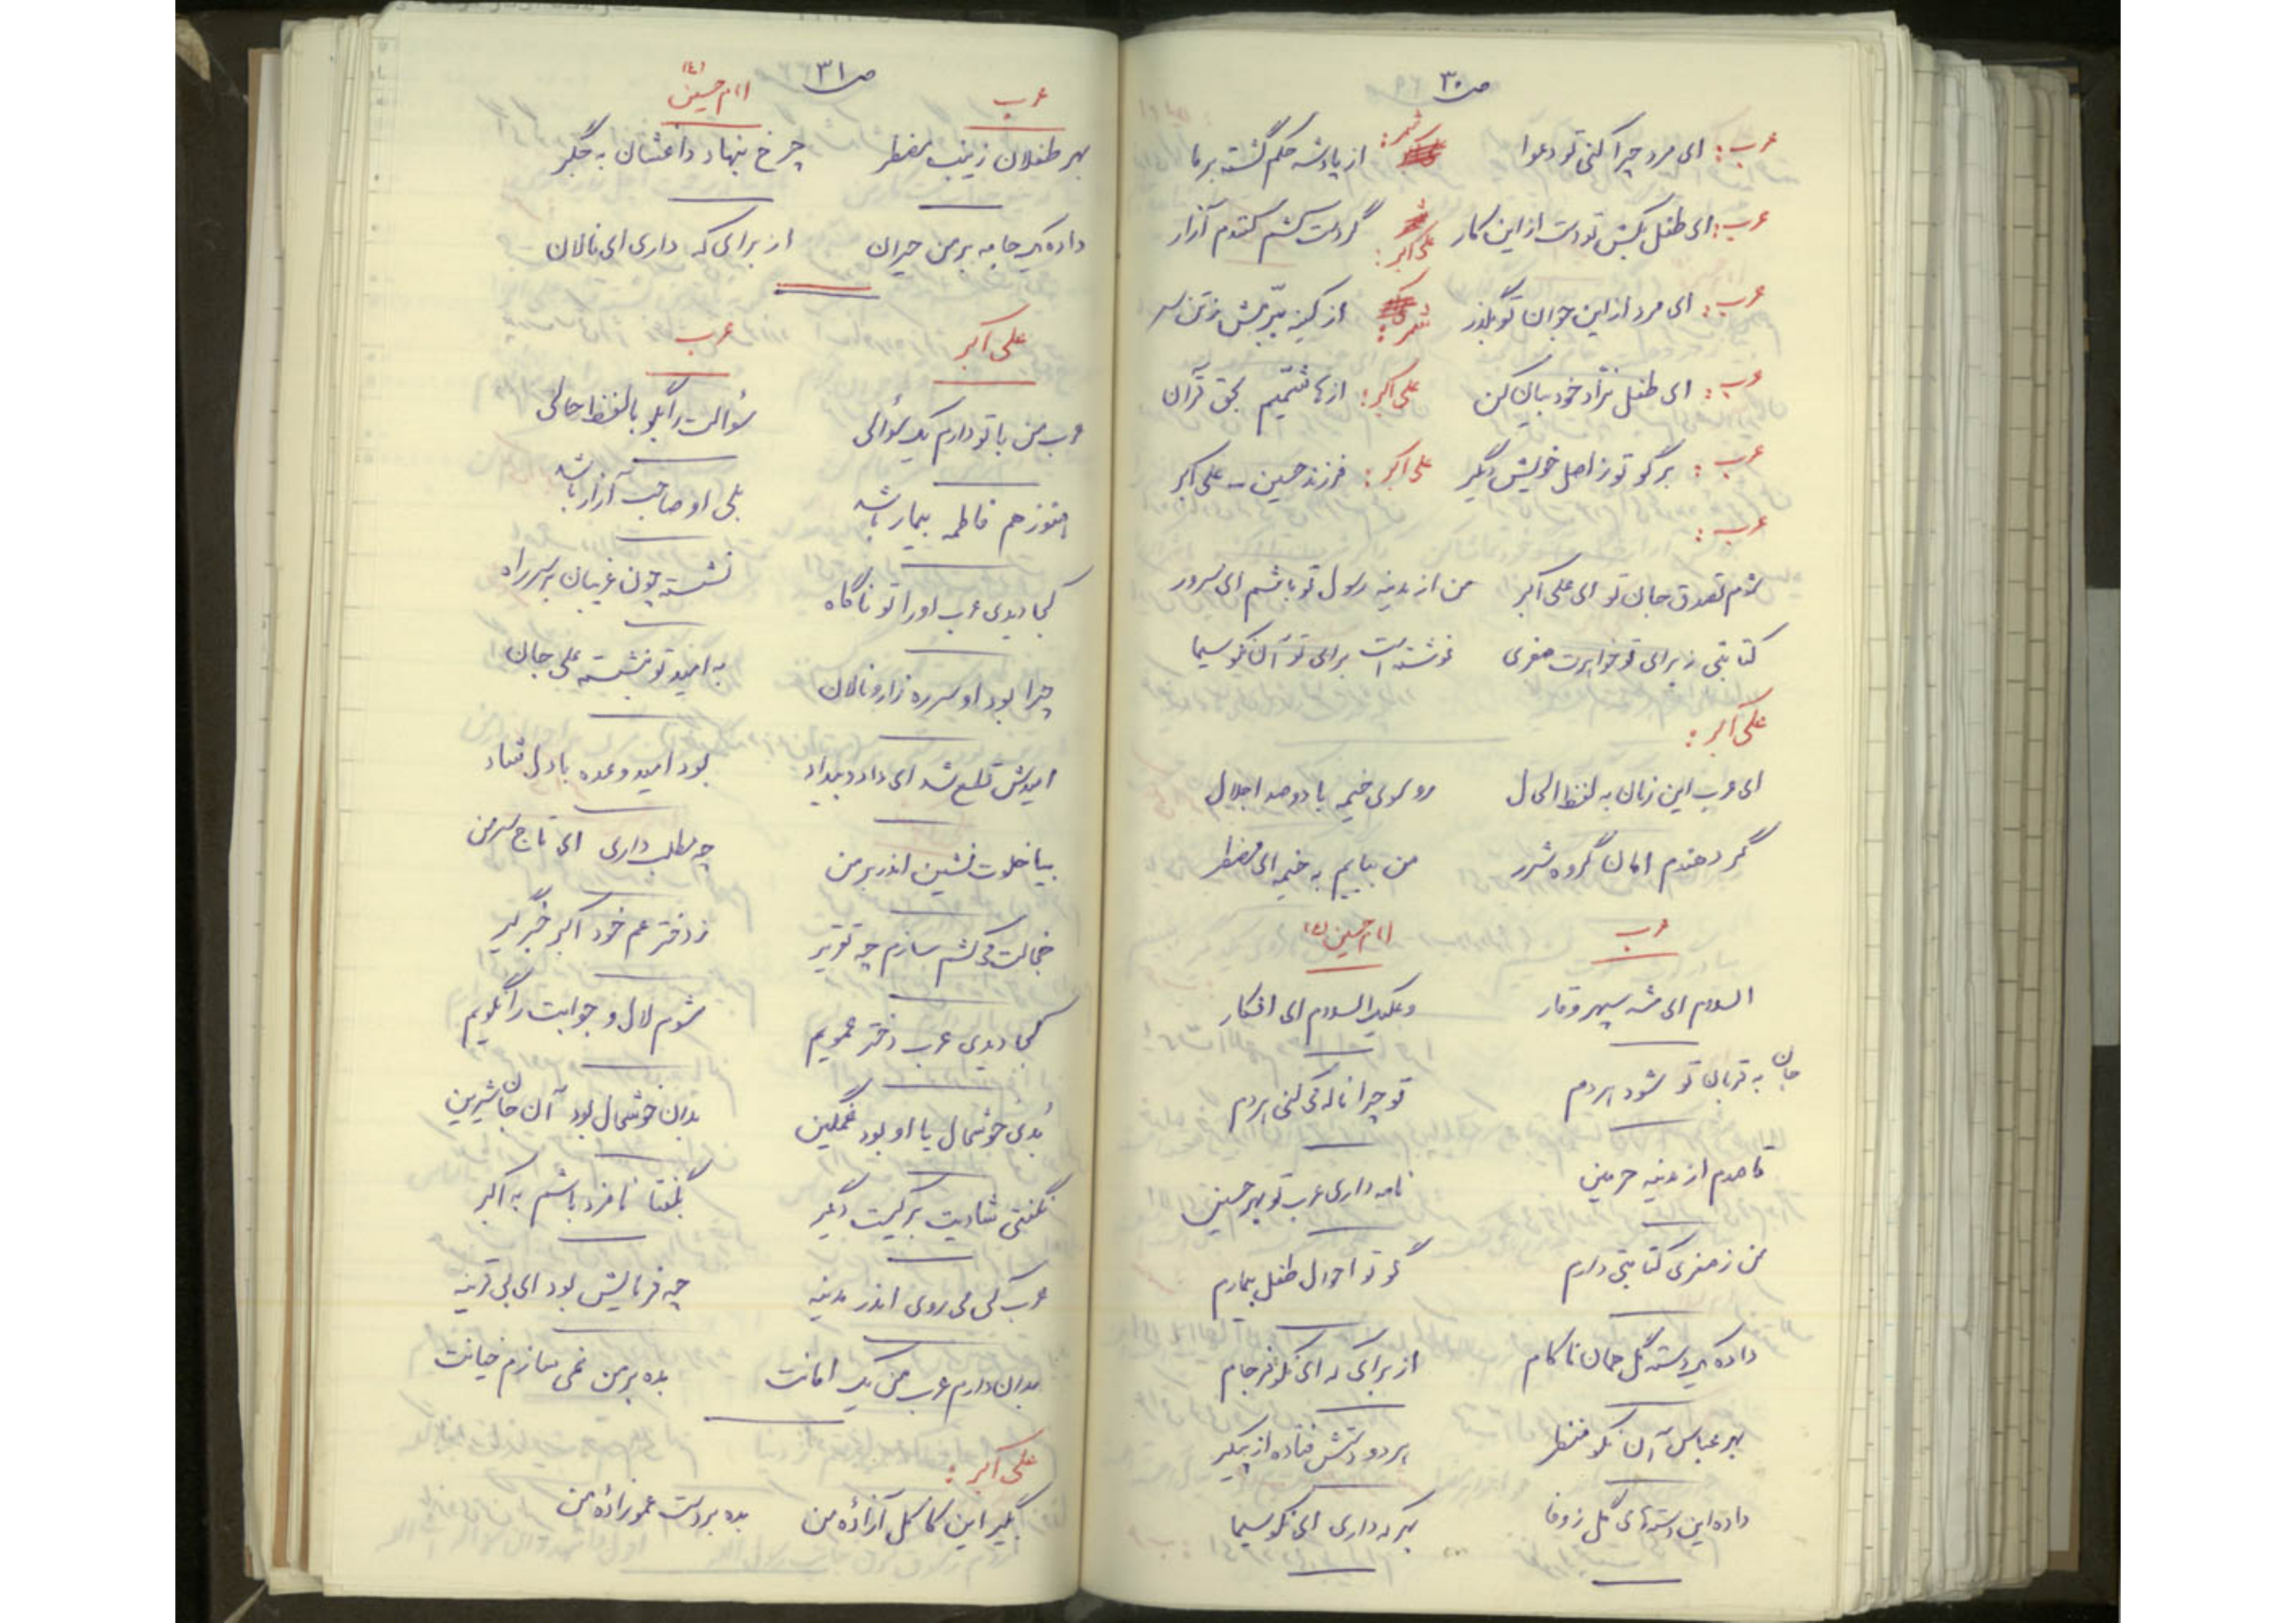 ص ۳۰
عرب: ای مرد چرا کنی تو دعوا شمر: از پادشه حکم گشته بر ما
عرب: ای طفل بکش تو دست از این کار علی اکبر: گر دست کشم کنندم آزار
عرب: ای مرد از این جوان تو بگذر شمر: از کینه ببرمش ز تن سر
عرب: ای طفل نژاد خود بیان کن علی اکبر: از هاشمیم بحق قرآن
عرب: برگو تو ز اصل خویش دیگر علی اکبر: فرزند حسین علی اکبر
عرب:
شوم تصدق جان تو ای علی اکبر من از مدینه رسول تو باشم ای سرور
کتابتی ز برای تو خواهرت صغری نوشته است برای تو آن نکو سیما
علی اکبر:
ای عرب این زمان به لفظ الحال رو بسوی خیمه با دو صد اجلال
گر دهندم امان گروه شرر من بیایم به خیمه ای مضطر
عرب امام حسین (ع)
السلام ای شه سپهر وقار وعلیک السلام ای افکار
جان به قربان تو شود هر دم تو چرا ناله می کنی هر دم
قاصدم از مدینه حرمین نامه داری عرب تو بهر حسین
من ز صغری کتابتی دارم گو تو احوال طفل بیمارم
داده یک دسته گل همان ناکام از برای که ای نکو فرجام
بهر عباس آن نکو منظر هر دو دستش فتاده از پیکر
داده این دسته های گل ز وفا بهر که داری ای نکو سیما
ص ۳۱
عرب امام حسین (ع)
بهر طفلان زینب مضطر چرخ بنهاد داغشان به جگر
داده یک جامه بر من حیران از برای که داری ای نالان
علی اکبر عرب
عرب من با تو دارم یک سؤالی سؤالت را بگو با لفظ حالی
هنوز هم فاطمه بیمار باشه بلی او صاحب آزار باشه
کجا دیدی عرب او را تو ناگاه نشسته چون غریبان بر سر راه
چرا بود او سر ره زار و نالان به امید تو بنشسته علی جان
امیدش قطع شد ای داد و بیداد بود امید وعده با دل شاد
بیا خلوت نشین اندر بر من چه مطلب داری ای تاج سر من
خجالت می کشم سازم چه تقریر ز دختر عم خود اکبر خبر گیر
کجا دیدی عرب دختر عمویم شوم لال و جوابت را نگویم
بدی خوشحال یا او بود غمگین بدان خوشحال بود آن جان شیرین
نگفتی شادیت بر کیست دیگر بگفتا نامزد باشم به اکبر
عرب کی می روی اندر مدینه چه فرمایش بود ای بی قرینه
بدان دارم عرب من یک امانت بده بر من نمی سازم خیانت
علی اکبر:
بگیر این کاکل آزاده من بده بر دست عموزاده من